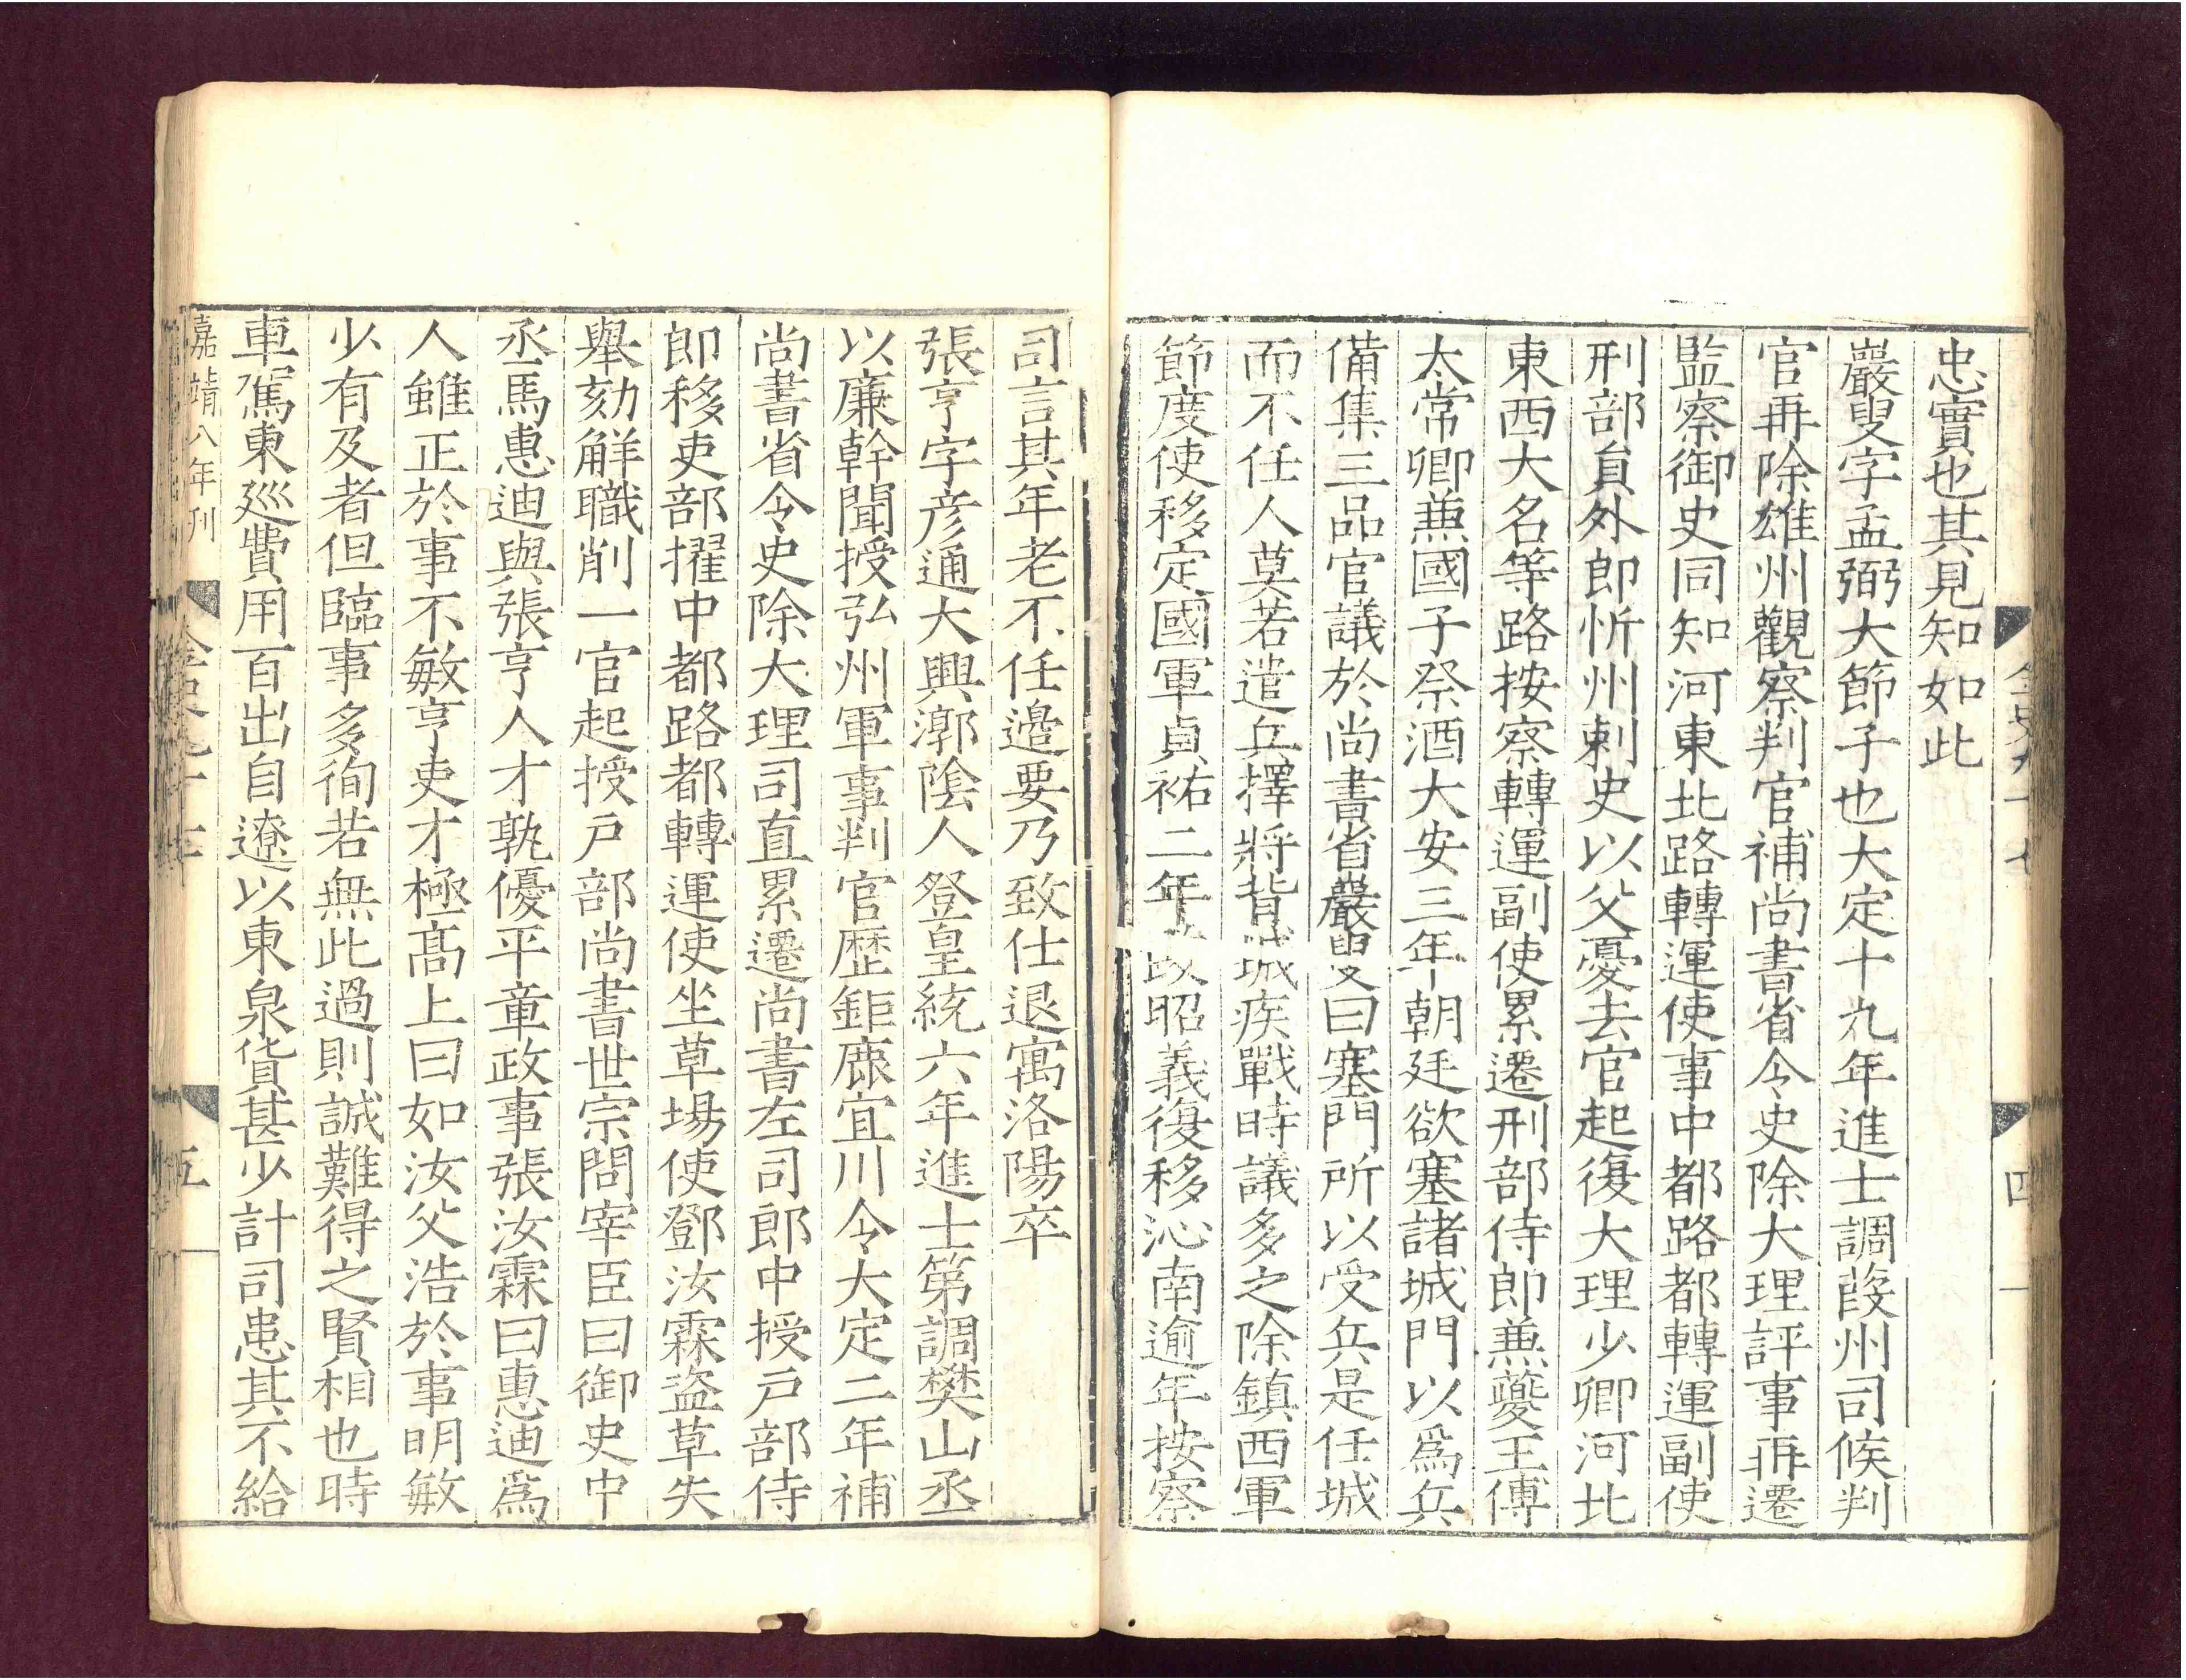 忠實也其見知如此
巖叟字孟弼大節子也大定十九年進士調葭州司候判
官再除雄州觀察判官補尚書省令史除大理評事再遷
監察御史同知河東北路轉運使事中都路都轉運副使
刑部員外郎忻州刺史以父憂去官起復大理少卿河北
東西大名等路按察轉運副使累遷刑部侍郎兼夔王傅
太常卿兼國子祭酒大安三年朝廷欲塞諸城門以爲兵
備集三品官議於尚書省巖叟曰塞門所以受兵是任城
而不任人莫若遣兵擇將背城疾戰時議多之除鎮西軍
節度使移定國軍貞祐二年改昭義復移沁南逾年按察
四
司言其年老不任邊要乃致仕退寓洛陽卒
張亨字彥通大興漷陰人登皇統六年進士第調樊山丞
以廉幹聞授弘州軍事判官歷鉅鹿宜川令大定二年補
尚書省令史除大理司直累遷尚書左司郎中授戶部侍
郎移吏部擢中都路都轉運使坐草場使鄧汝霖盜草失
舉劾解職削一官起授戶部尚書世宗問宰臣曰御史中
丞馬惠迪與張亨人才孰優平章政事張汝霖曰惠迪爲
人雖正於事不敏亨吏才極高上曰如汝父浩於事明敏
少有及者但臨事多徇若無此過則誠難得之賢相也時
車駕東巡費用百出自遼以東泉貨甚少計司患其不給
嘉靖八年刊
金史九十七
五